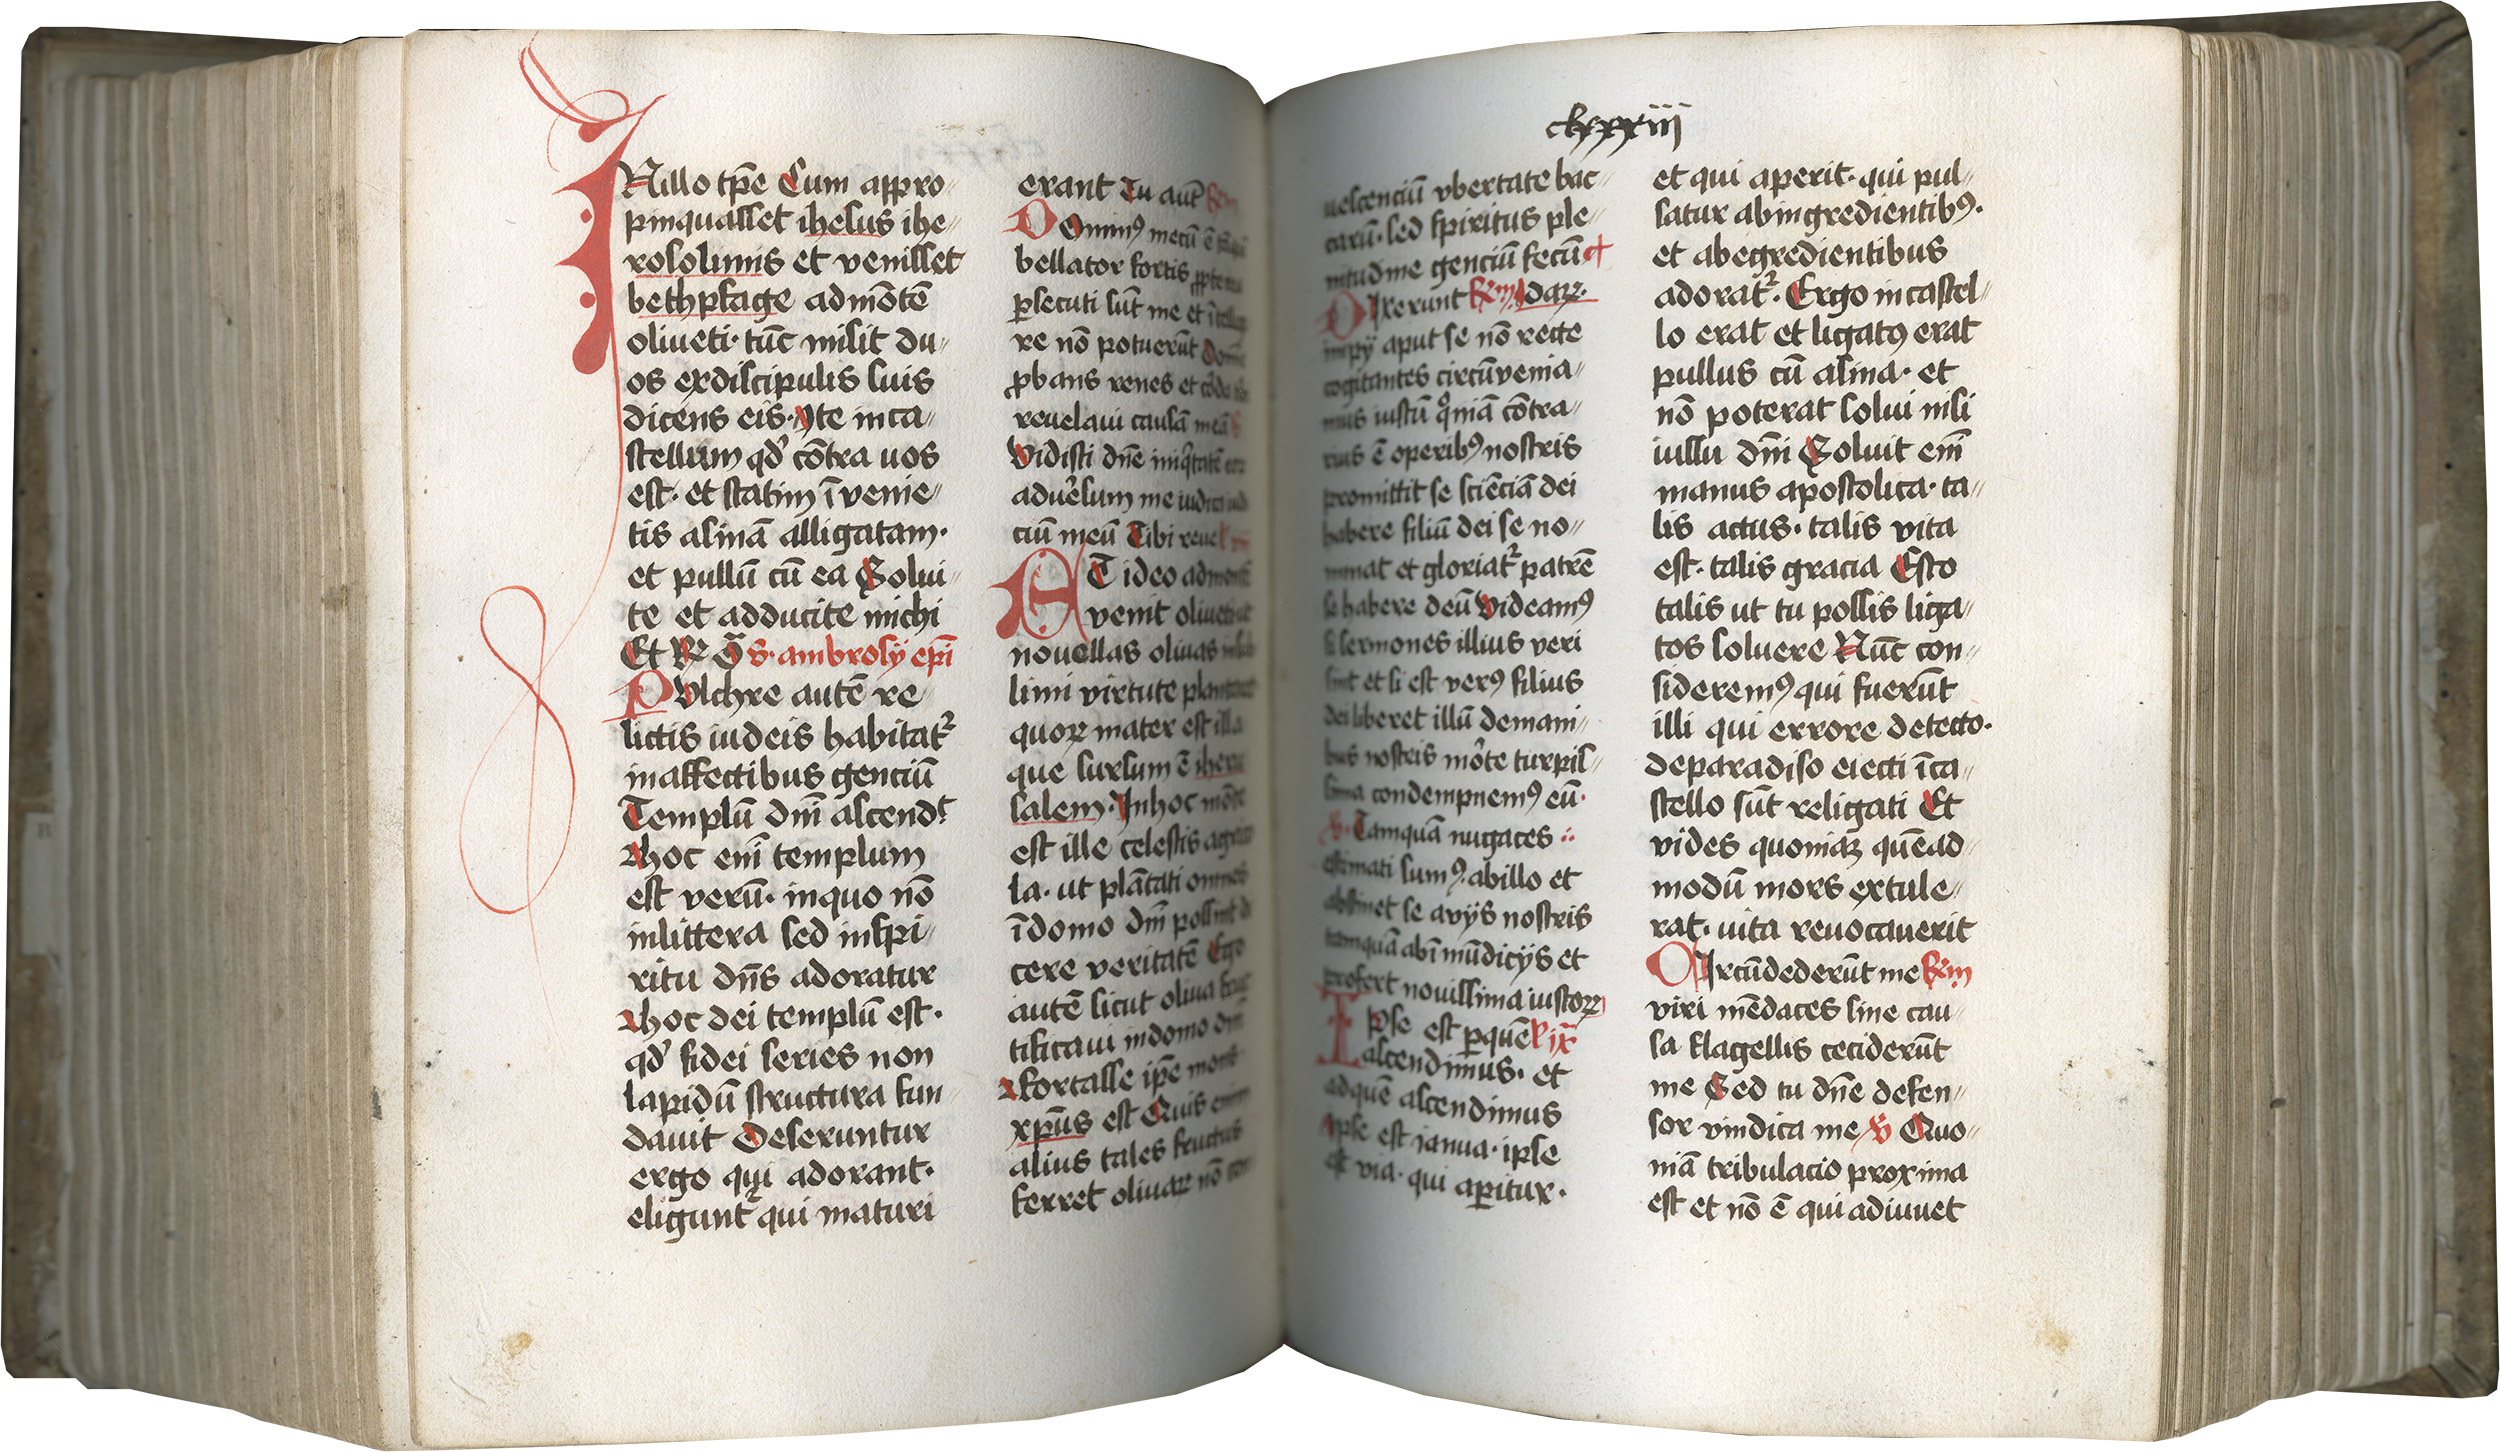 INillo tp̄e Cum appro//
pinquasset ihesus ihe//
rosolimis et venisset
bethpfage admōtē
oliueti· tūc misit du//
os exdiscipulis suis
dicens eis· Ite inca//
stellum qd' cōtra uos
est· et statim īvenie//
tis asinā alligatam·
et pullū cū ea Solui//
te et adducite michi
Et R S· ambrosÿ ep̄i
PVlchre autē re//
lictis iudeis habitat᷑
inaffectibus genciū
Templū dn̄i ascend᷑
hoc em̄ templum
est verū· inquo nō
inlittera sed inspi//
ritu dn̄s adoratur
hoc dei templū est·
qd' fidei series non
lapidū structura fun//
dauit Deseruntur
ergo qui adorant·
eligunt᷑ qui maturi
erant Tu aut̄
DOmin⁹ mecū ē
bellator fortis
ꝑsecuti sūt me et
re nō potuerūt
ꝓbans renes et
reuelaui causā meā
Vidisti dn̄e
aduersum me
ciū meū Tibi
AT ideo
venit
nouellas oliuas
limi virtute
quoꝝ mater est illa
que sursum ē iheru
salem· Inhoc
est ille celestis
la· ut plātati omnes
īdomo dn̄i possint
cere veritatē Ego
autē sicut oliua
tificaui indomo dn̄i
fortasse ip̄e mons
xp̄us est Quis enim
alius tales fructus
ferret oliuaꝝ nō
clxxxiii
vbertate bac//
sed spiritus ple//
nitudine genciū fecūd
DIxerunt
impÿ aput se nō recte
cogitantes circūvenia//
mus iustū qoniā cōtra//
rius ē operib⁹ nostris
promittit se sciēciā dei
habere filiū dei se no//
minat et gloriat᷑ patrē
se habere deū Videam⁹
si sermones illius veri
sint et si est ver⁹ filius
dei liberet illū demani//
bus nostris mōte turpis//
sima condempnem⁹ eū·
V· Tamquā nugaces
estimati sum⁹ abillo et
abstinet se avÿs nostris
tamquā abī mūdicÿs et
prefert nouissima iustoꝝ
IPse est ꝑquē
ascendimus· et
adquē ascendimus
Ipse est ianua· ipse
est via· qui aꝑitur·
et qui aperit· qui pul//
satur abingredientib⁹·
et abegredientibus
adorat᷑· Ergo incastel//
lo erat et ligat⁹ erat
pullus cū asina· et
nō poterat solui nisi
iussu dn̄i Soluit em̄
manus apostolica· ta//
lis actus· talis vita
est· talis gracia Esto
talis ut tu possis liga//
tos soluere Nūc con//
siderem⁹ qui fuerūt
illi qui errore detecto·
deparadiso eiecti īca//
stello sūt religati Et
vides quoniaꝫ quēad//
modū mors extule//
rat· uita reuocauerit
CIrcūdederūt me
viri mēdaces sine cau//
sa flagellis ceciderūt
me Sed tu dn̄e defen//
sor vindica me V Quo//
niā tribulacio proxima
est et nō ē qui adiuuet